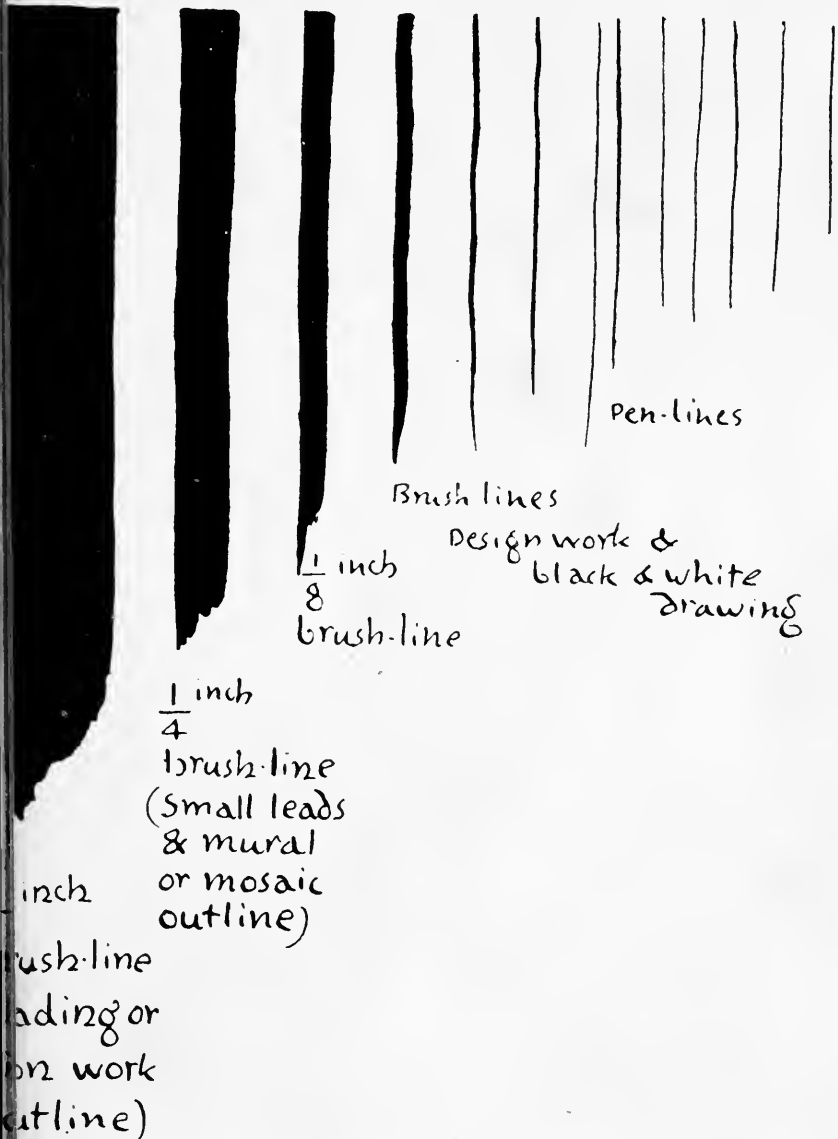 Pen-lines
Brush lines
Design work &
black & white
drawing
1/8 inch
brush-line
1/4 inch
brush-line
(Small leads
& mural
or mosaic
outline)
inch
rush-line
ading or
on work
utline)